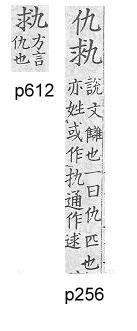 方言
仇也
p612
仇
說文讎也一曰仇匹也
亦姓或作通作逑
p256